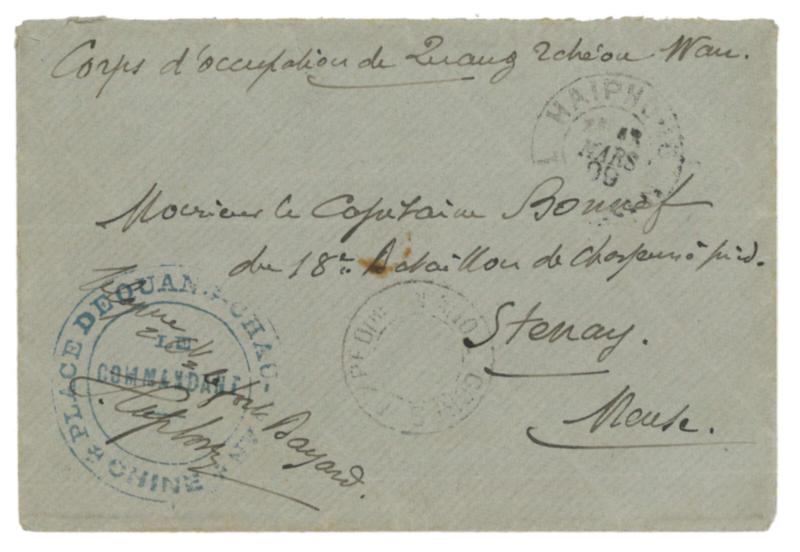 Corps d'occupation de Quang Tchéou Wan.
HAIPHONG
MARS
99
Monsieur le Capitaine Bonnef
du 18e Bataillon de Chasseurs à pied.
Stenay.
Meuse.
PLACE DE QUANG-TCHAU-WAN
CHINE
LE
COMMANDANT
CORPS EXPEDIT
Bayard.